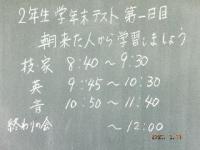 2年生 学年末テスト 第一日目
朝来た人から学習しましょう
技家 8:40 ~ 9:30
英 9:45 ~ 10:30
音 10:50 ~ 11:40
終わりの会 ~ 12:00